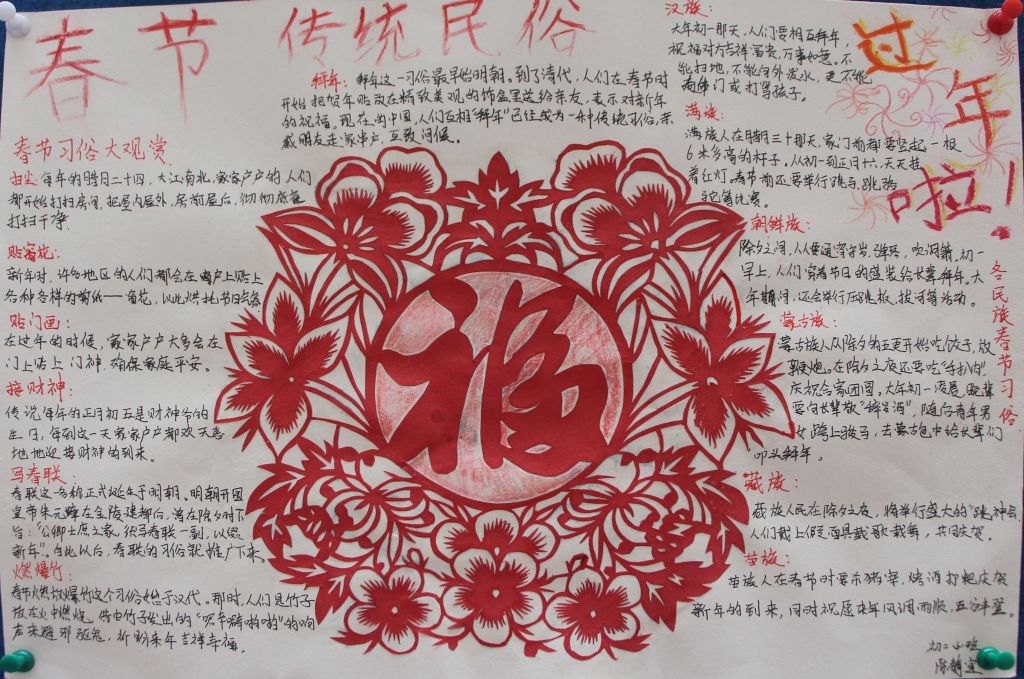 春节 传统民俗
过年啦！
春节习俗大观赏
扫尘：每年的腊月二十四，大江南北，家家户户的人们
都开始打扫房间，把屋内屋外，房前屋后，彻彻底底
打扫干净
贴窗花：
新年时，许多地区的人们都会在窗户上贴上
各种各样的剪纸——窗花，以此烘托节日气氛
贴门画：
在过年的时候，家家户户大多会在
门上贴上门神，确保家庭平安。
接财神：
传说每年的正月初五是财神爷的
生日，每到这一天家家户户都欢天喜
地地迎接财神的到来。
写春联
春联这一名称正式诞生于明朝。明朝开国
皇帝朱元璋在金陵建都后，曾在除夕时下
旨：“公卿士庶之家，须写春联一副，以缀
新年”。自此以后，春联的习俗就推广下来。
燃爆竹：
春节燃放爆竹这个习俗始于汉代。那时，人们是竹子
放在火中燃烧，借由竹子发出的“噼噼啪啪”的响
声来避邪驱鬼，祈盼来年吉祥幸福。
拜年：拜年这一习俗最早始明朝。到了清代，人们在春节时
开始把贺年贴放在精致美观的饰盒里送给亲友，表示对新年
的祝福。现在的中国，人们互相“拜年”已经成为一种传统习俗，亲
戚朋友走家串户，互致问候。
汉族：
大年初一那天，人们要相互拜年，
祝福对方吉祥富贵，万事如意。不
能扫地，不能向外泼水，更不能
门或打骂孩子。
满族：
满族人在腊月三十那天，家门前都要竖起一根
6米多高的杆子，从初一到正月十六，天天挂
着红灯。春节前还要举行跳马、跳骆
驼等比赛。
各民族春节习俗
朝鲜族：
除夕之间，人人要通宵守岁，弹琴，吹洞箫，初一
早上，人们穿着节日的盛装给长辈拜年。大
年期间，还会举行压跳板，拔河等活动。
蒙古族：
蒙古族人从除夕的五更开始吃饺子，放
鞭炮。在除夕之夜还要吃“手扒肉”
庆祝合家团圆。大年初一凌晨，晚辈
要向长辈敬“辞岁酒”，随后青年男
女跨上骏马，去蒙古包中给长辈们
叩头拜年。
藏族：
藏族人民在除夕之夜，将举行盛大的“跳神会”
人们戴上假面具载歌载舞，共同庆贺。
苗族：
苗族人在春节时要杀猪宰，烤酒打粑庆贺
新年的到来，同时祝愿来年风调雨顺，五谷丰登。
初二
陈静宜